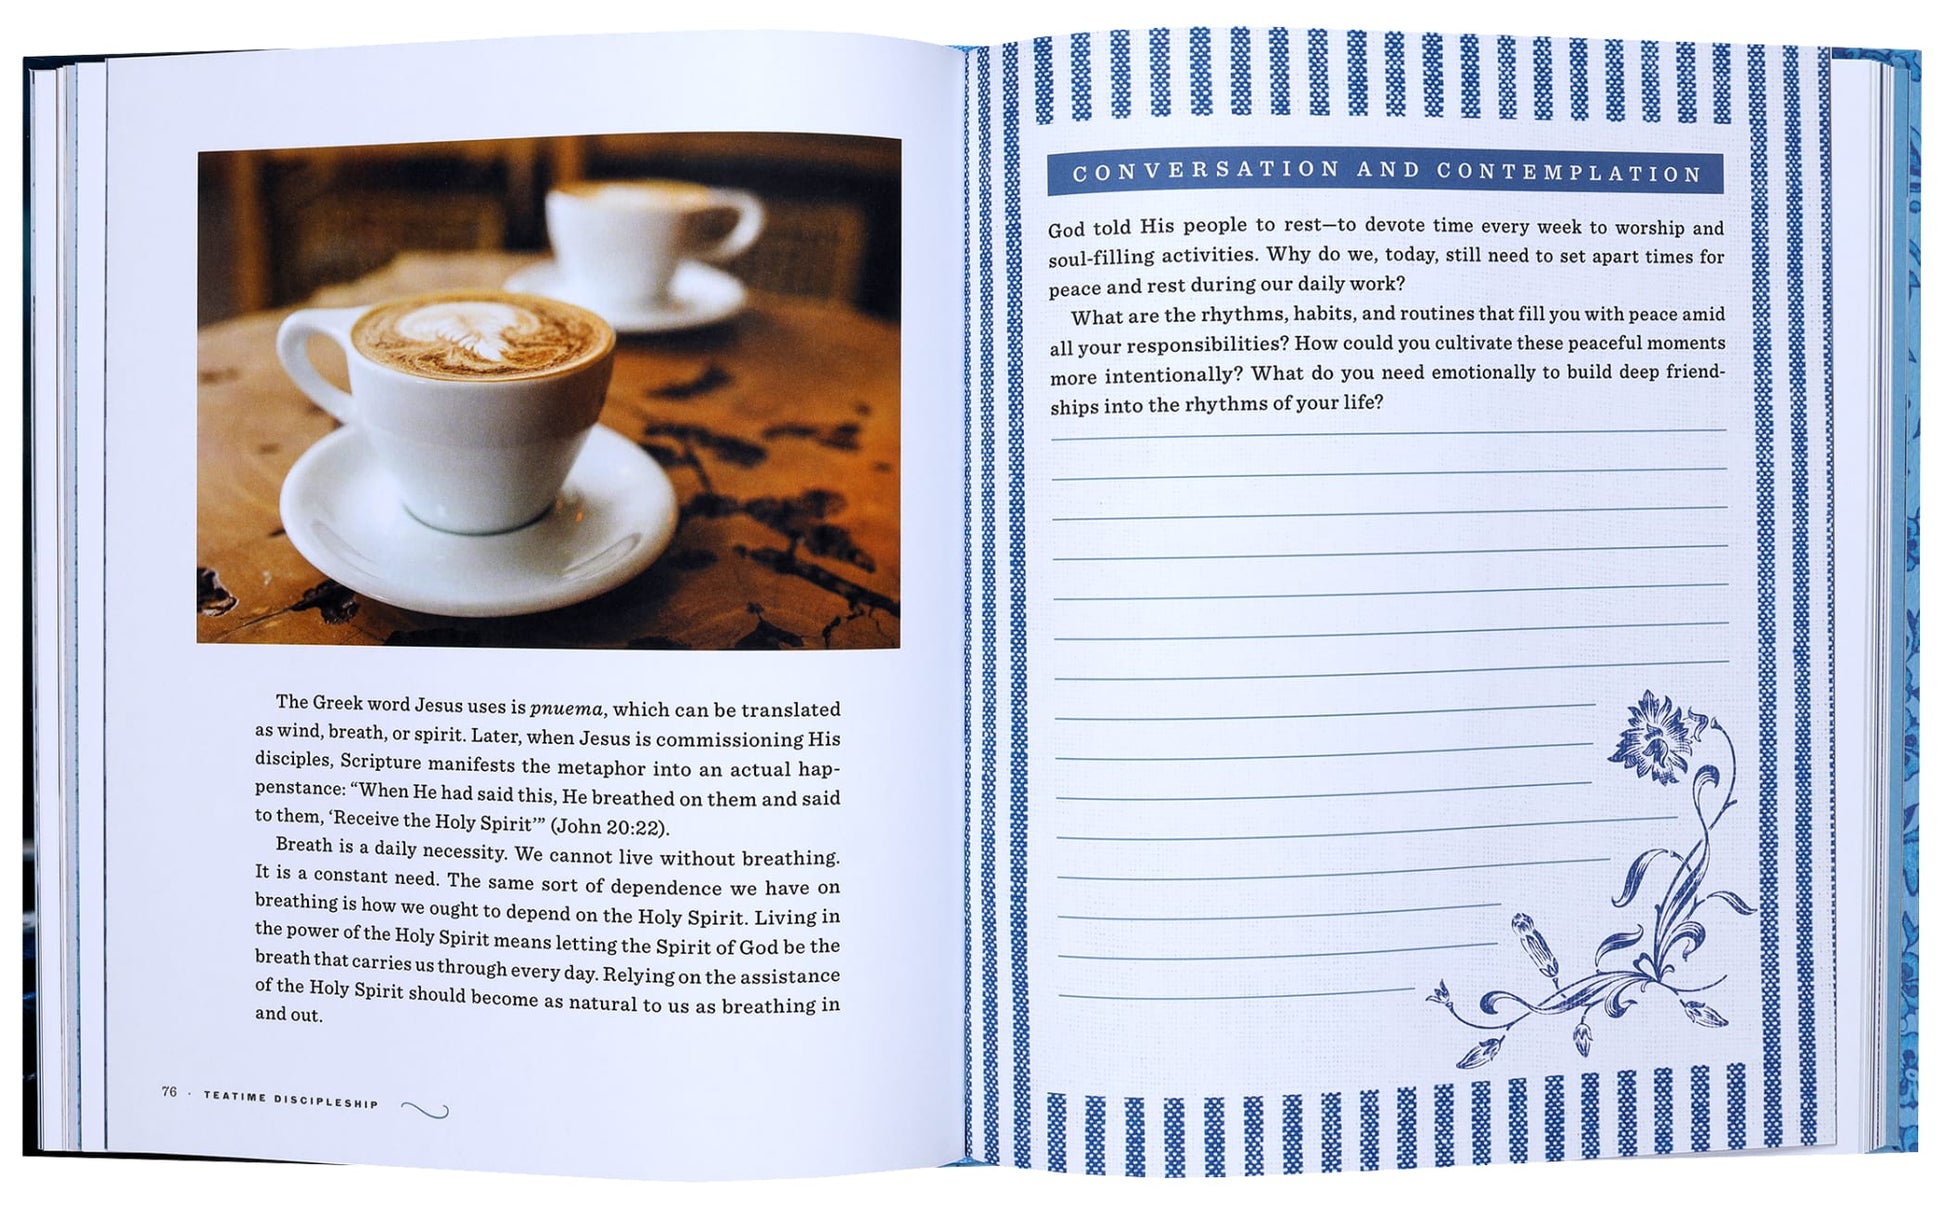 The Greek word Jesus uses is pnuema, which can be translated
as wind, breath, or spirit. Later, when Jesus is commissioning His
disciples, Scripture manifests the metaphor into an actual hap-
penstance: “When He had said this, He breathed on them and said
to them, ‘Receive the Holy Spirit’” (John 20:22).
Breath is a daily necessity. We cannot live without breathing.
It is a constant need. The same sort of dependence we have on
breathing is how we ought to depend on the Holy Spirit. Living in
the power of the Holy Spirit means letting the Spirit of God be the
breath that carries us through every day. Relying on the assistance
of the Holy Spirit should become as natural to us as breathing in
and out.
76 · TEATIME DISCIPLESHIP
CONVERSATION AND CONTEMPLATION
God told His people to rest—to devote time every week to worship and
soul-filling activities. Why do we, today, still need to set apart times for
peace and rest during our daily work?
What are the rhythms, habits, and routines that fill you with peace amid
all your responsibilities? How could you cultivate these peaceful moments
more intentionally? What do you need emotionally to build deep friend-
ships into the rhythms of your life?